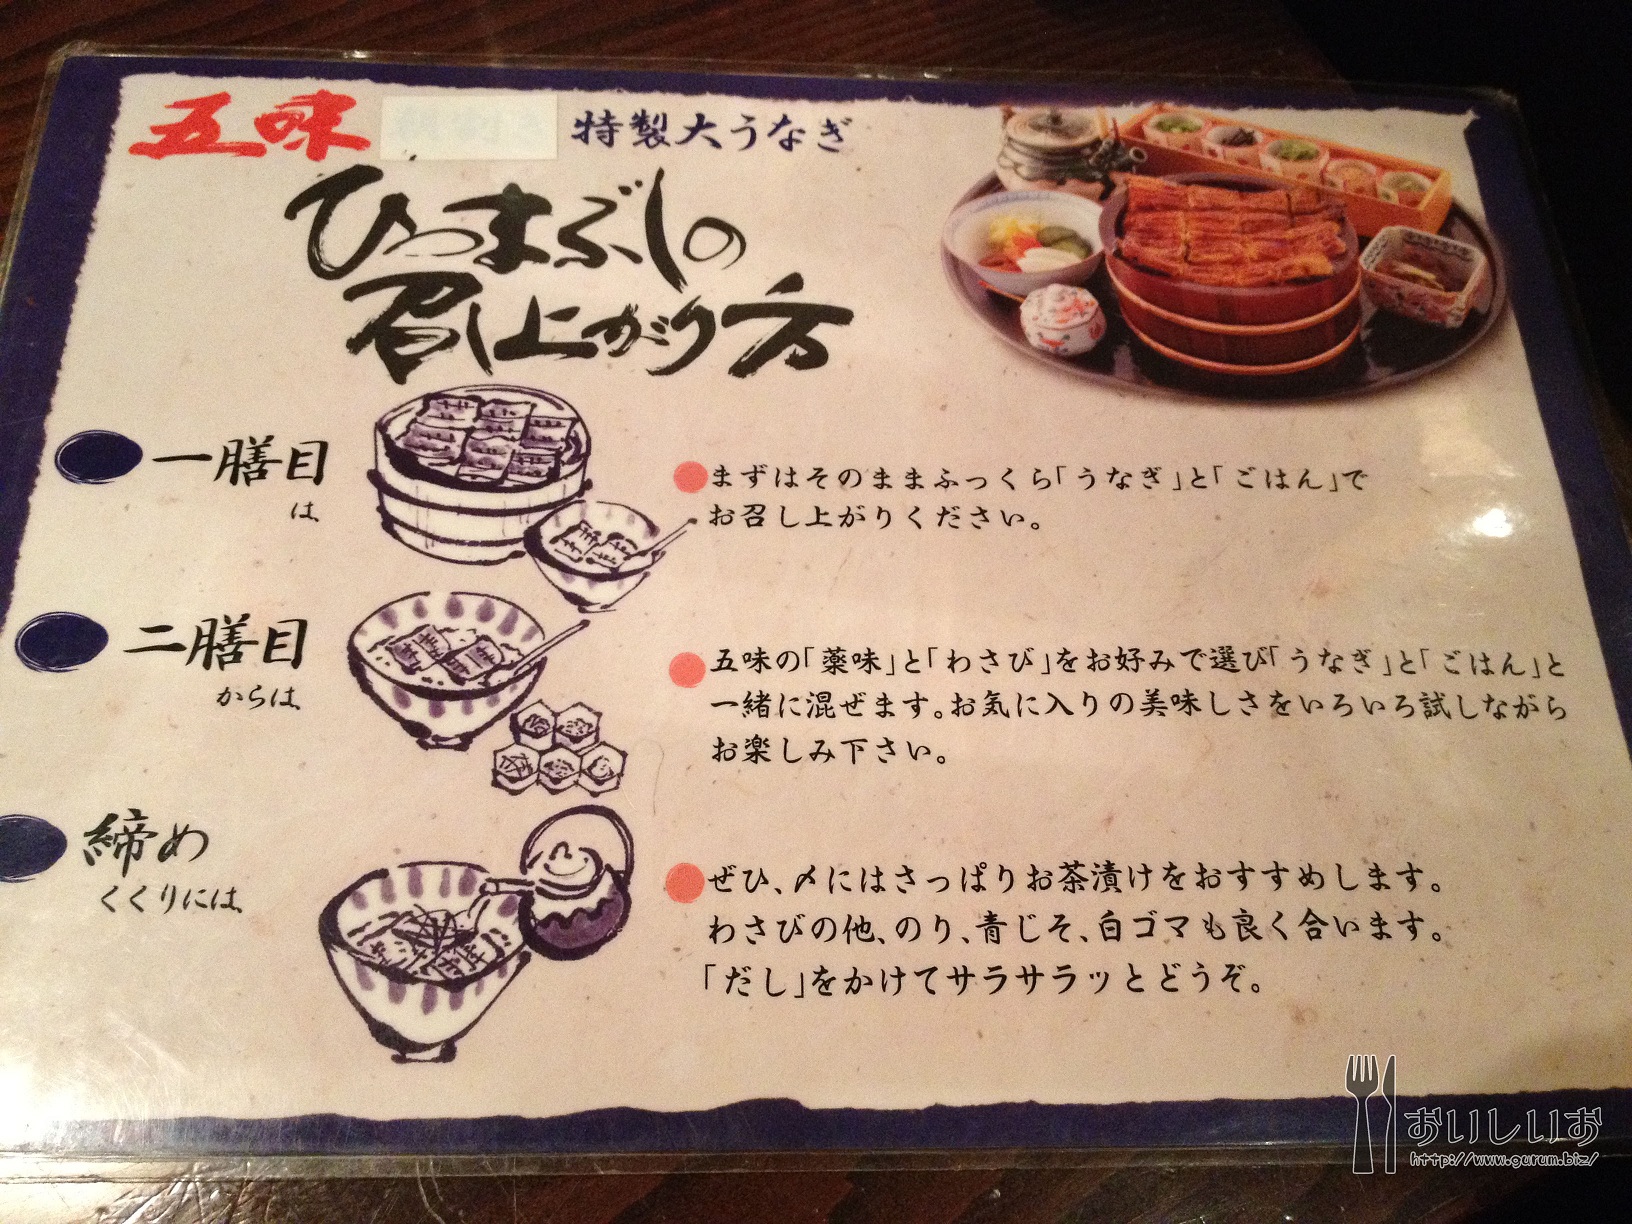 五味
特製大うなぎ
ひつまぶしの
召し上がり方
一膳目
は、
まずはそのままふっくら「うなぎ」と「ごはん」で
お召し上がりください。
二膳目
からは、
五味の「薬味」と「わさび」をお好みで選び「うなぎ」と「ごはん」と
一緒に混ぜます。お気に入りの美味しさをいろいろ試しながら
お楽しみ下さい。
締め
くくりには、
ぜひ、〆にはさっぱりお茶漬けをおすすめします。
わさびの他、のり、青じそ、白ゴマも良く合います。
「だし」をかけてサラサラッとどうぞ。
おいしいお
http://www.gurum.biz/